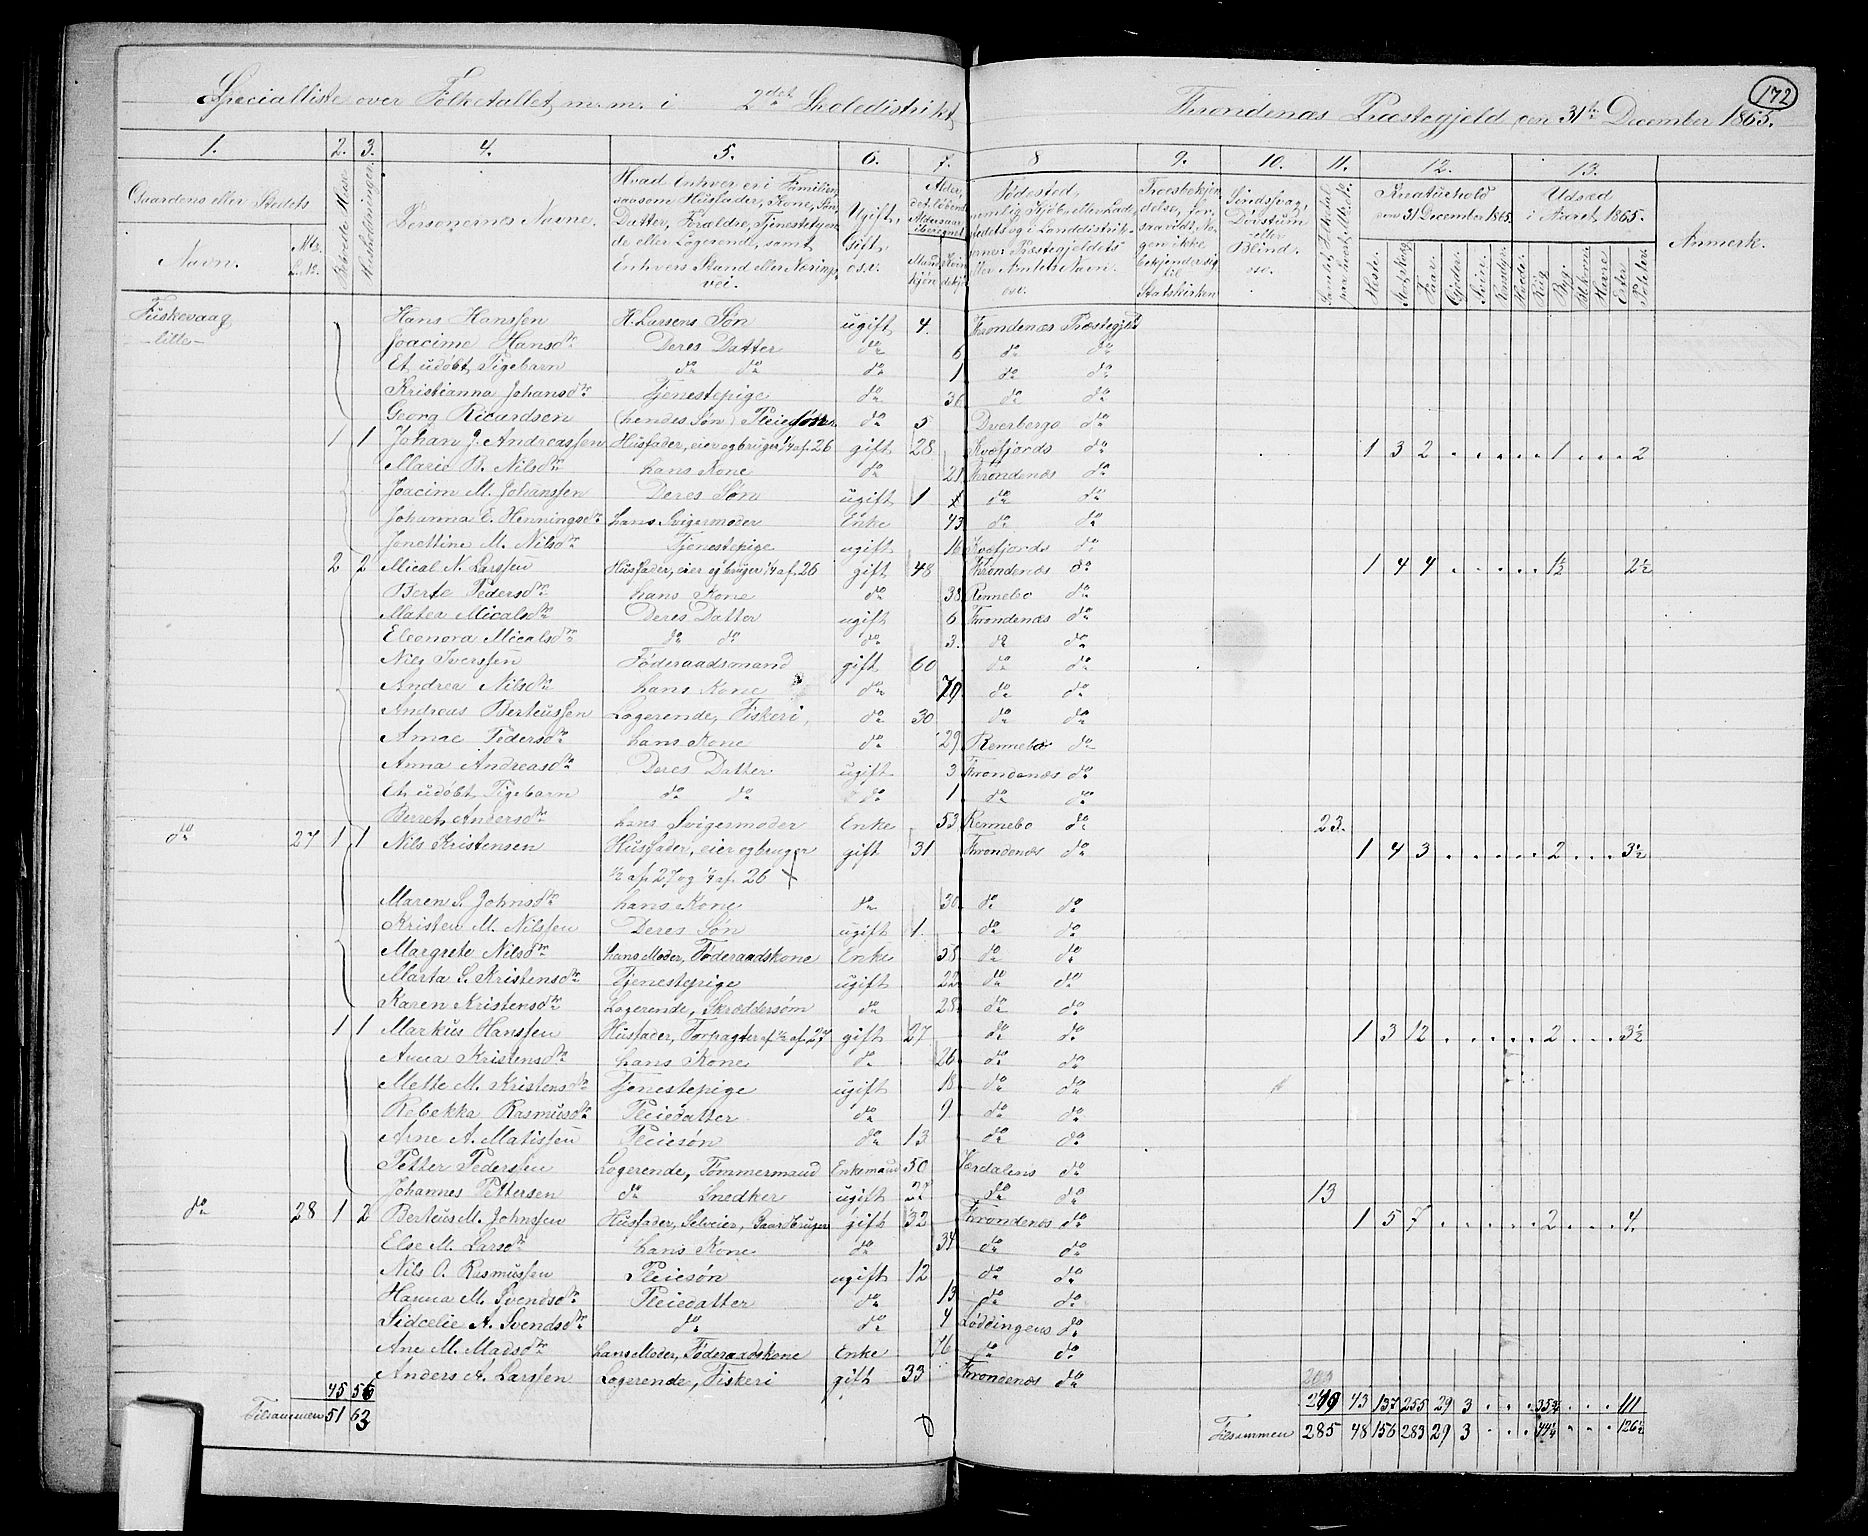 172
Specialliste over Folketallet m. m. i 2det Skoledistrikt Throndenæs Præstegjeld den 31te December 1865.
1. 2. 3. 4. 5. 6. 7. 8 9. 10. 11. 12. 13.
Gaardens eller Stedets Navn. Mtr. L. No. Bebode Huse Husholdninger. Personernes Navne. Hvad Enhver er i Familien, saasom Husfader, Kone, Søn, Datter, Forældre, Tjenestetyende eller Logerende, samt Enhvers Stand eller Næringsvei. Ugift, Gift, o.s.v. Alder, det løbende Aldersaar iberegnet Mandkjøn Kvindekjøn Fødested, nemlig Kjøb- eller Ladestedets og i Landdistrikterne Præstegjeldets eller Amtets Navn. osv. Troesbekjendelse, forsaavidt Nogen ikke bekjender sig til Statskirken Sindssvag, Døvstum eller Blind. osv. Kreaturhold den 31 December 1865. Udsæd i Aaret 1865. Anmerk.
Heste. Storfæ Faar. Gjeder. Sviin. Rensdyr. Hvede. Rug Byg. Havre Erter Poteter.
Fuskevaag Hans Hanssen H. Larsens Søn ugift 4. Throndenæs Præstegjeld
- lille - Joacime Hansdtr Deres Datter do 6 do do
Et udøbt Pigebarn do do do 1 do do
Kristianna Johansdtr Tjenestepige do 36 do do
Georg Ricardsen (hendes Søn) Pleiesøn do 5 Dverbergs do
1 1 Johan J. Andreassen Husfader, eier og bruger 1/4 af 26 gift 28 Kvæfjords do 1 3 2 . . . . . 1 . . . 2
Marie B. Nilsdtr hans Kone do 21 Throndenæs do
Joacim M. Johanssen Deres Søn ugift 1 do do
Johanna E. Henningsdtr hans Svigermoder Enke 43 do do
Jonettine M. Nilsdtr Tjenestepige ugift 16 Kvæfjords do
2 2 Mical N. Larssen Husfader, eier og bruger 1/4 af 26 gift 48 Throndenæs do 1 4 4 . . . . . 1½ 2½
Berte Pedersdtr hans Kone do 38 Rennebo do
Matea Micalsdtr Deres Datter ugift 6 Throndenæs do
Eleonora Micalsdtr do do do 3. do do
Nils Iverssen Føderaadsmand gift 60 do do
Andrea Nilsdtr hans Kone do 70 do do
Andreas Berteussen Logerende, Fiskeri, do 30 do do
Amac Pedersdtr hans Kone do 29 Rennebo do
Anna Andreasdtr Deres Datter ugift 3 Throndenæs do
Et udøbt Pigebarn do do do 1 do do
Berret Andersdtr hans Svigermoder Enke 53 Rennebo do 23.
do 27 1 1 Nils Kristensen Husfader, eier og bruger gift 31 Throndenæs do 1 4 3 . . . . . 2 . . . 3½
½ af 27 og ¼ af 26 X
Maren S. Johnsdtr hans Kone do 30 do do
Kristen M. Nilssen Deres Søn ugift 1. do do
Margrete Nilsdtr hans Moder, Føderaadskone Enke 58 do do
Marta S. Kristensdtr Tjenestepige ugift 22 do do
Karen Kristensdtr Logerende, Skræddersøm do 28 do do
1 1 Markus Hanssen Husfader, Forpagter af ½ af 27 gift 27 do do 1 3 12 . . . . . 2 . . . 3½
Anna Kristensdtr hans Kone do 26 do do
Mette M. Kristensdtr Tjenestepige ugift 18 do do
Rebekka Rasmusdtr Pleiedatter do 9 do do
Arne A. Matissen Pleiesøn do 13 do do
Petter Pedersen Logerende, Tømmermand Enkemand 50 Værdalens do
Johannes Pettersen do Snedker ugift 22 do do 13
do 28 1 2 Berteus M. Johnssen Husfader, Selveier, Gaardbruger gift 32 Throndenæs do 1 5 7 . . . . . 2 . . . 4.
Else M. Larsdtr hans Kone do 34 do do
Nils O. Rasmussen Pleiesøn ugift 12 do do
Hanna M. Svendsdtr Pleiedatter do 13 do do
Sidcelie A. Svendsdtr do do 4 Løddingens do
Ane M. Madsdtr hans Moder, Føderaadskone Enke 76 do do
Anders A. Larssen Logerende, Fiskeri gift 33 Throndenæs do
45 56 249 43 137 255 29 3 . . . 35¾ . . . 111
Tilsammen 51 63 Tilsammen 285 48 156 283 29 3 . . . 44¼ . . . 126½